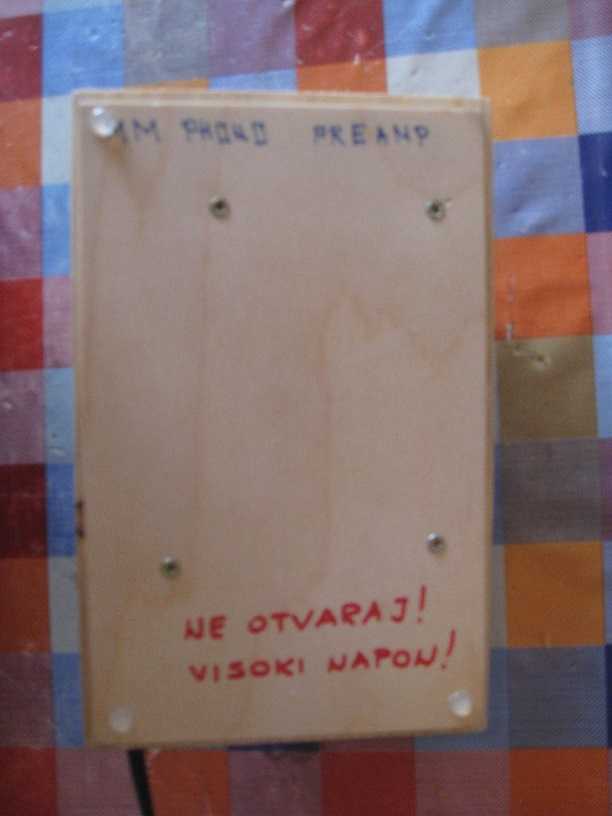 MM PHONO PREAMP
NE OTVARAJ!
VISOKI NAPON!